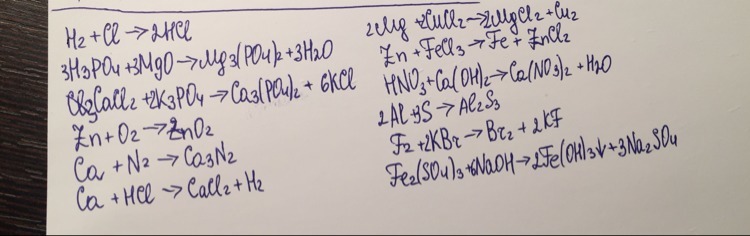 H2 + Cl → 2HCl
3H3PO4 + 3MgO → Mg3(PO4)2 + 3H2O
CaCl2 + 2K3PO4 → Ca3(PO4)2 + 6KCl
Zn + O2 → ZnO2
Ca + N2 → Ca3N2
Ca + HCl → CaCl2 + H2
2Mg + 2CuCl2 → 2MgCl2 + Cu2
Zn + FeCl3 → Fe + ZnCl2
HNO3 + Ca(OH)2 → Ca(NO3)2 + H2O
2Al + 3S → Al2S3
F2 + 2KBr → Br2 + 2KF
Fe2(SO4)3 + 6NaOH → 2Fe(OH)3↓ + 3Na2SO4